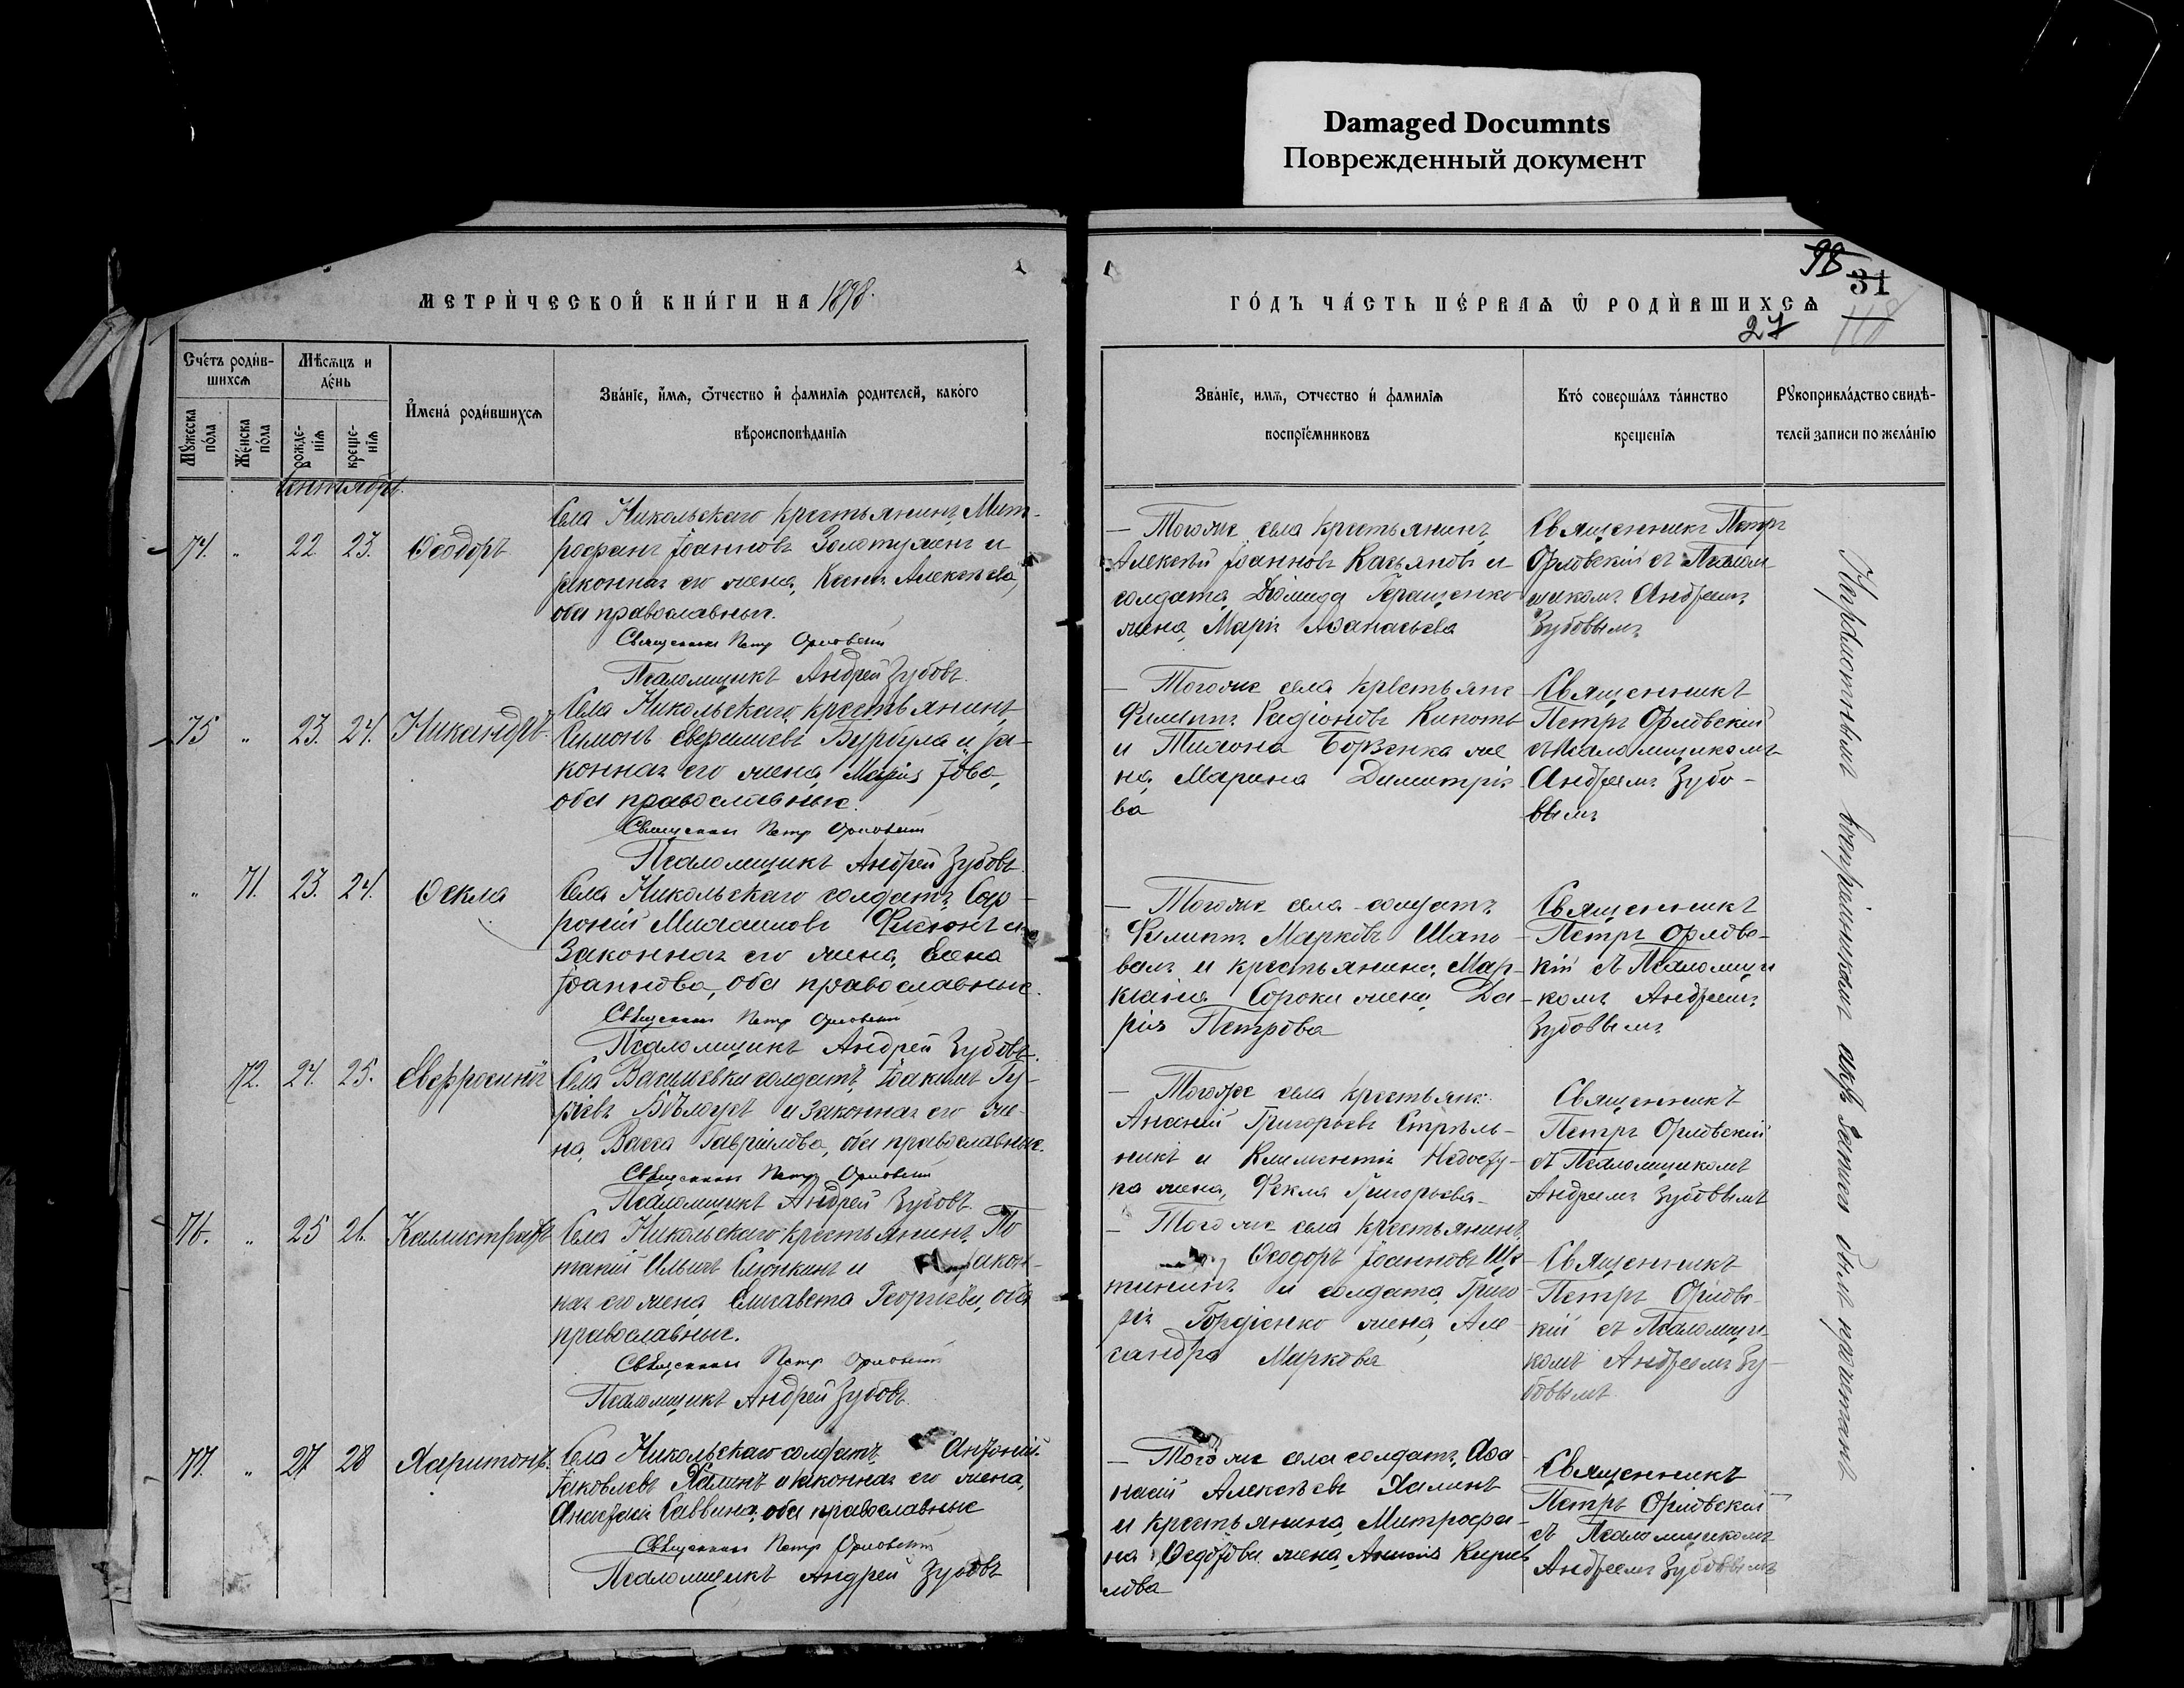 Damaged Documnts
Поврежденный документ
98
31
118
27
МЕТРИЧЕСКОЙ КНИГИ НА 1898.
ГОДЪ ЧАСТЬ ПЕРВАЯ Ѿ РОДИВШИХСЯ
Счетъ родив-
шихся
Мужеска
пола
Женска
пола
Мѣсяцъ и
день
рожде-
нія
креще-
нія
Имена родившихся
Званіе, имя, отчество и фамилія родителей, какого
вѣроисповѣданія
Званіе, имя, отчество и фамилія
воспріемниковъ
Кто совершалъ таинство
крещенія
Рукоприкладство свидѣ-
телей записи по желанію
Сентябрь.
74. " 22 23. Ѳеодоръ
Села Никольскаго крестьянинъ Мит-
рофанъ Іоанновъ и
законная его жена Алексѣева,
оба православные.
Священникъ Петр Орловскій
Псаломщикъ Андрей Зубовъ.
— Тогоже села крестьянинъ
Алексѣй Іоанновъ Касьяновъ и
солдата Діомида Геращенко
жена Марія Аѳанасьева
Священникъ Петръ
Орловскій съ Псалом
щикомъ Андреемъ
Зубовымъ
75 " 23. 24. Никандръ.
Села Никольскаго крестьянинъ
Симонъ и за-
конная его жена Марія Іова,
оба православные.
Священникъ Петр Орловскій
Псаломщикъ Андрей Зубовъ.
— Тогоже села крестьяне
Филиппъ Радіоновъ
и Тихона Борзенка же
на Марина Димитріе
ва
Священникъ
Петръ Орловскій
съ Псаломщикомъ
Андреемъ Зубо-
вымъ
" 71. 23. 24. Ѳекла
Села Никольскаго солдатъ Соф-
роній Михаиловъ и
Законная его жена Елена
Іоаннова, оба православные.
Священникъ Петр Орловскій
Псаломщикъ Андрей Зубовъ.
— Тогоже села солдатъ
Филиппъ Марковъ Шапо
валъ и крестьянина Мар-
кіана Сороки жена Да-
рія Петрова
Священникъ
Петръ Орловс-
кій съ Псаломщи
комъ Андреемъ
Зубовымъ
72. 24. 25. Евфросинія
Села Васильевки солдатъ Іоакимъ Гу-
ріевъ Бѣлоусъ и законная его же-
на Васса Гавріилова, оба православные.
Священникъ Петр Орловскій
Псаломщикъ Андрей Зубовъ.
— Тогоже села крестьяне:
Ананій Григорьевъ Стрѣль-
никъ и Климентія
ра жена Ѳекла Григорьева
Священникъ
Петръ Орловскій
съ Псаломщикомъ
Андреемъ Зубовымъ
76. " 25 26. Каллистратъ
Села Никольскаго крестьянинъ По
тапій Ильинъ и закон-
ная его жена Елисавета Георгіева, оба
православные.
Священникъ Петр Орловскій
Псаломщикъ Андрей Зубовъ.
— Тогоже села крестьянинъ
Ѳеодоръ Іоанновъ Ще
тининъ и солдата Григо
рія Гордіенко жена Але
сандра Маркова
Священникъ
Петръ Орловс-
кій съ Псаломщи-
комъ Андреемъ Зу-
бовымъ
77. " 27. 28 Харитонъ.
Села Никольскаго солдатъ Антоній
Іаковлевъ Халинъ и законная его жена,
Анастасія Саввина, оба православные
Священникъ Петр Орловскій
Псаломщикъ Андрей Зубовъ
— Тогоже села солдатъ Аѳа
насій Алексѣевъ Халинъ
и крестьянина Митрофа-
на Ѳедорова жена Кирил
лова
Священникъ
Петръ Орловскій
съ Псаломщикомъ
Андреемъ Зубовымъ
Неграмотнымъ воспріемникамъ актъ записи былъ прочитанъ